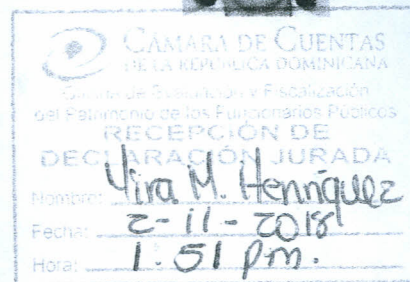 CÁMARA DE CUENTAS
DE LA REPÚBLICA DOMINICANA
Oficina de Evaluación y Fiscalización
del Patrimonio de los Funcionarios Públicos
RECEPCIÓN DE
DECLARACIÓN JURADA
Nombre: Yira M. Henríquez
Fecha: 2-11-2018
Hora: 1:51 pm.